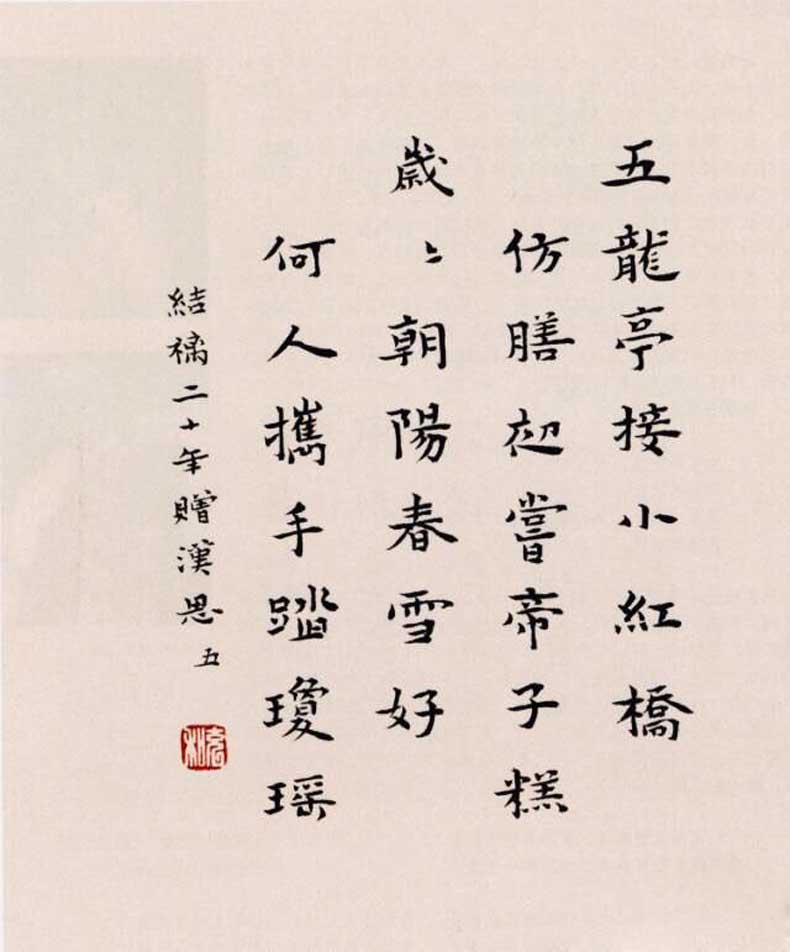 五龍亭接小紅橋
仿膳初嘗帝子糕
歲〻朝陽春雪好
何人攜手踏瓊瑤
結褵二十年贈漢思 五
充和